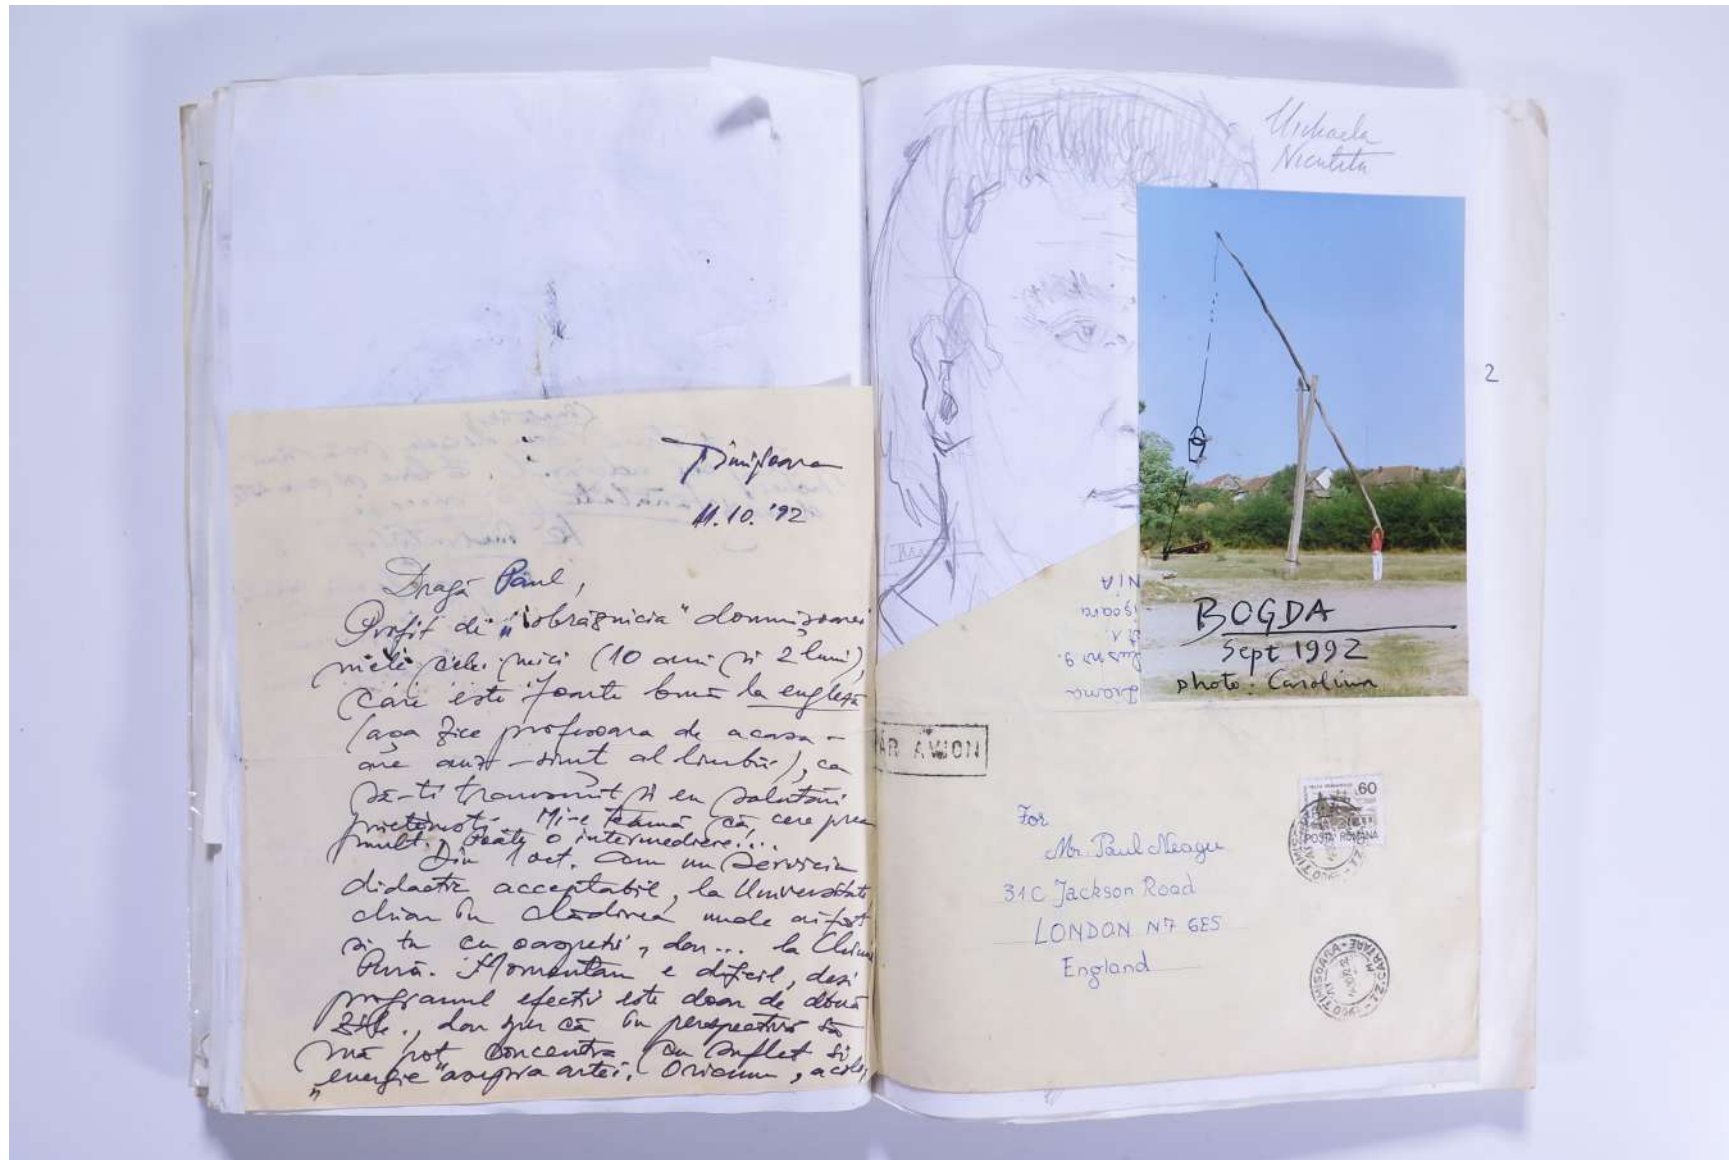 Timișoara
11.10.'92
Dragă Paul,
Profit de "obrăznicia" domnișoarei
mele celei mici (10 ani și 2 luni),
care este foarte bună la engleză
(așa zice profesoara de acasa -
are auz - simt al limbii), ca
să-ti transmit și eu salutări
prietenești. Mi-e teamă că cere prea
mult. Poate o intermediere!...
Din 1 oct. am un serviciu
didactic acceptabil, la Universitate
chiar în clădirea unde ai fost
și tu cu, dar... la
Pură. Momentan e dificil, desi
programul efectiv este doar de două
zile, dar sper că în perspectivă să
mă pot concentra cu suflet si
"energie" asupra artei. Oricum, acolo,
Michaela
Niculita
2
BOGDA
Sept 1992
photo: Carolina
NIA
işoara
Rus nr 9.
PAR AVION
60
POSTA ROMANA
For
Mr. Paul Neagu
31C Jackson Road
LONDON N7 6ES
England